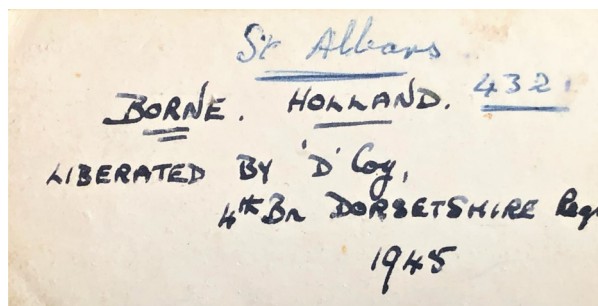 St Albans
4321
BORNE. HOLLAND.
LIBERATED BY 'D' Coy,
4th Bn DORSETSHIRE Reg
1945